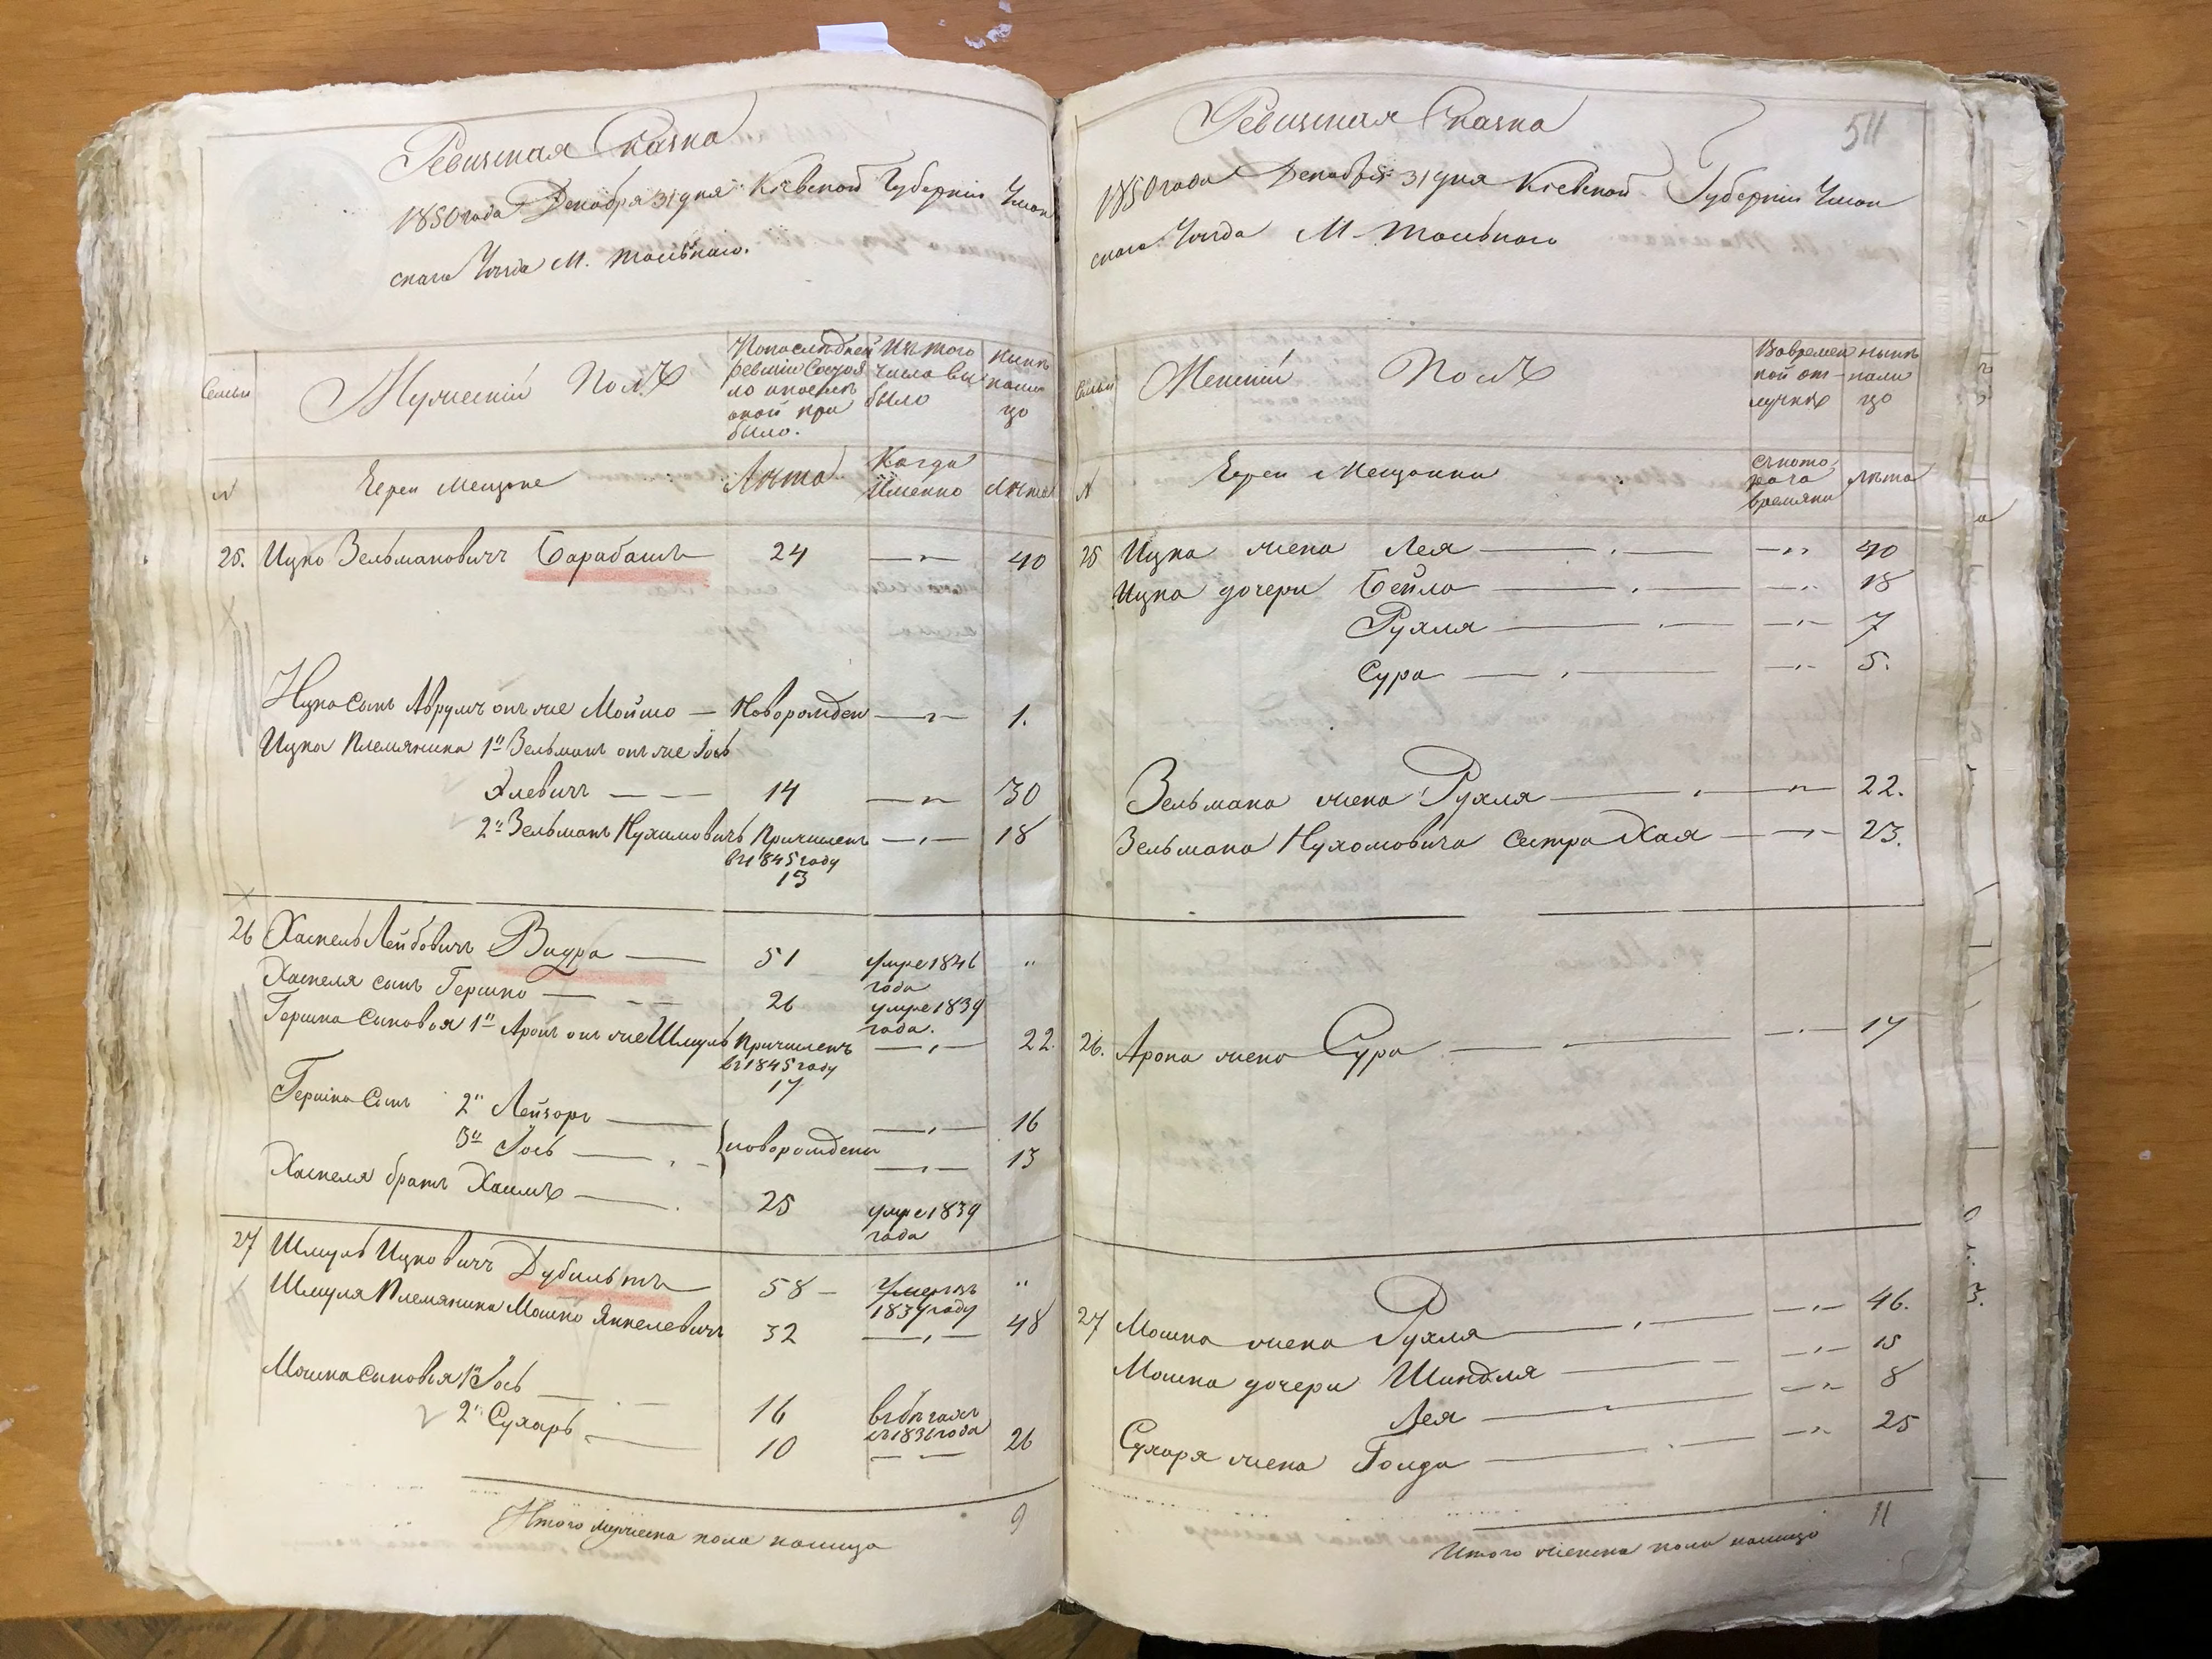 Ревизская Сказка
1850 года Декабря 31 дня Кіевской Губерніи Уман
скаго Уезда М. Тальнаго.
Семьи
Мужескій Полъ
По последней
ревизіи состоя
ло и после
оной при
было.
Изъ того
числа вы
было
Ныне
нали
цо
№
Евреи Мещане
Лета
Когда
Именно
Лета
25. Ицко Зельмановичъ Барабашъ 24 40
Ицка сынъ Аврумъ онъ же Мойшо — Новорожден 1.
Ицка Племянника 1й Зельманъ онъ же Іось
Элевичъ 14 30
2й Зельманъ Нухимовичъ Причисленъ 18
въ 1845 году
13
26 Хаскель Лейбовичъ Видра 51 умре 1846 "
года
Хаскеля сынъ Гершко 26 умре 1839
года.
Гершка сыновья 1й Аронъ онъ же Шмуль Причисленъ 22.
въ 1845 году
17
Гершка Сынъ 2й Лейзоръ 16
3й Іось новорождены 13
Хаскеля братъ Хаимъ 25 умре 1839
года
27 Шмуль Ицковичъ Дубильтъ 58 — Умеръ "
1839 году
Шмуля Племянника Мошко Янкелевичъ 32 48
Мошка сыновья 1й Іось 16 въ бегахъ
съ 1836 года
2й Сухаръ 10 26
Итого мужеска пола налицо 9
511
Ревизская Сказка
1850 года Декабря 31 дня Кіевской Губерніи Уман
скаго Уезда М. Тальнаго
Семьи
Женскій Полъ
Во времен
ной от-
лучке
ныне
нали
цо
№
Евреи Мещанки
съ кото
рого
времяни
Лета
25 Ицка жена Лея 40
Ицка дочери Бейла 18
Рухля 7
Сура 5.
Зельмана жена Рухля 22.
Зельмана Нухомовича сестра Хая 23.
26. Арона жена Сура 17
27 Мошка жена Рухля 46.
Мошка дочери Шиндля 15
Лея 8
Сухаря жена Голда 25
Итого женска пола налицо 11